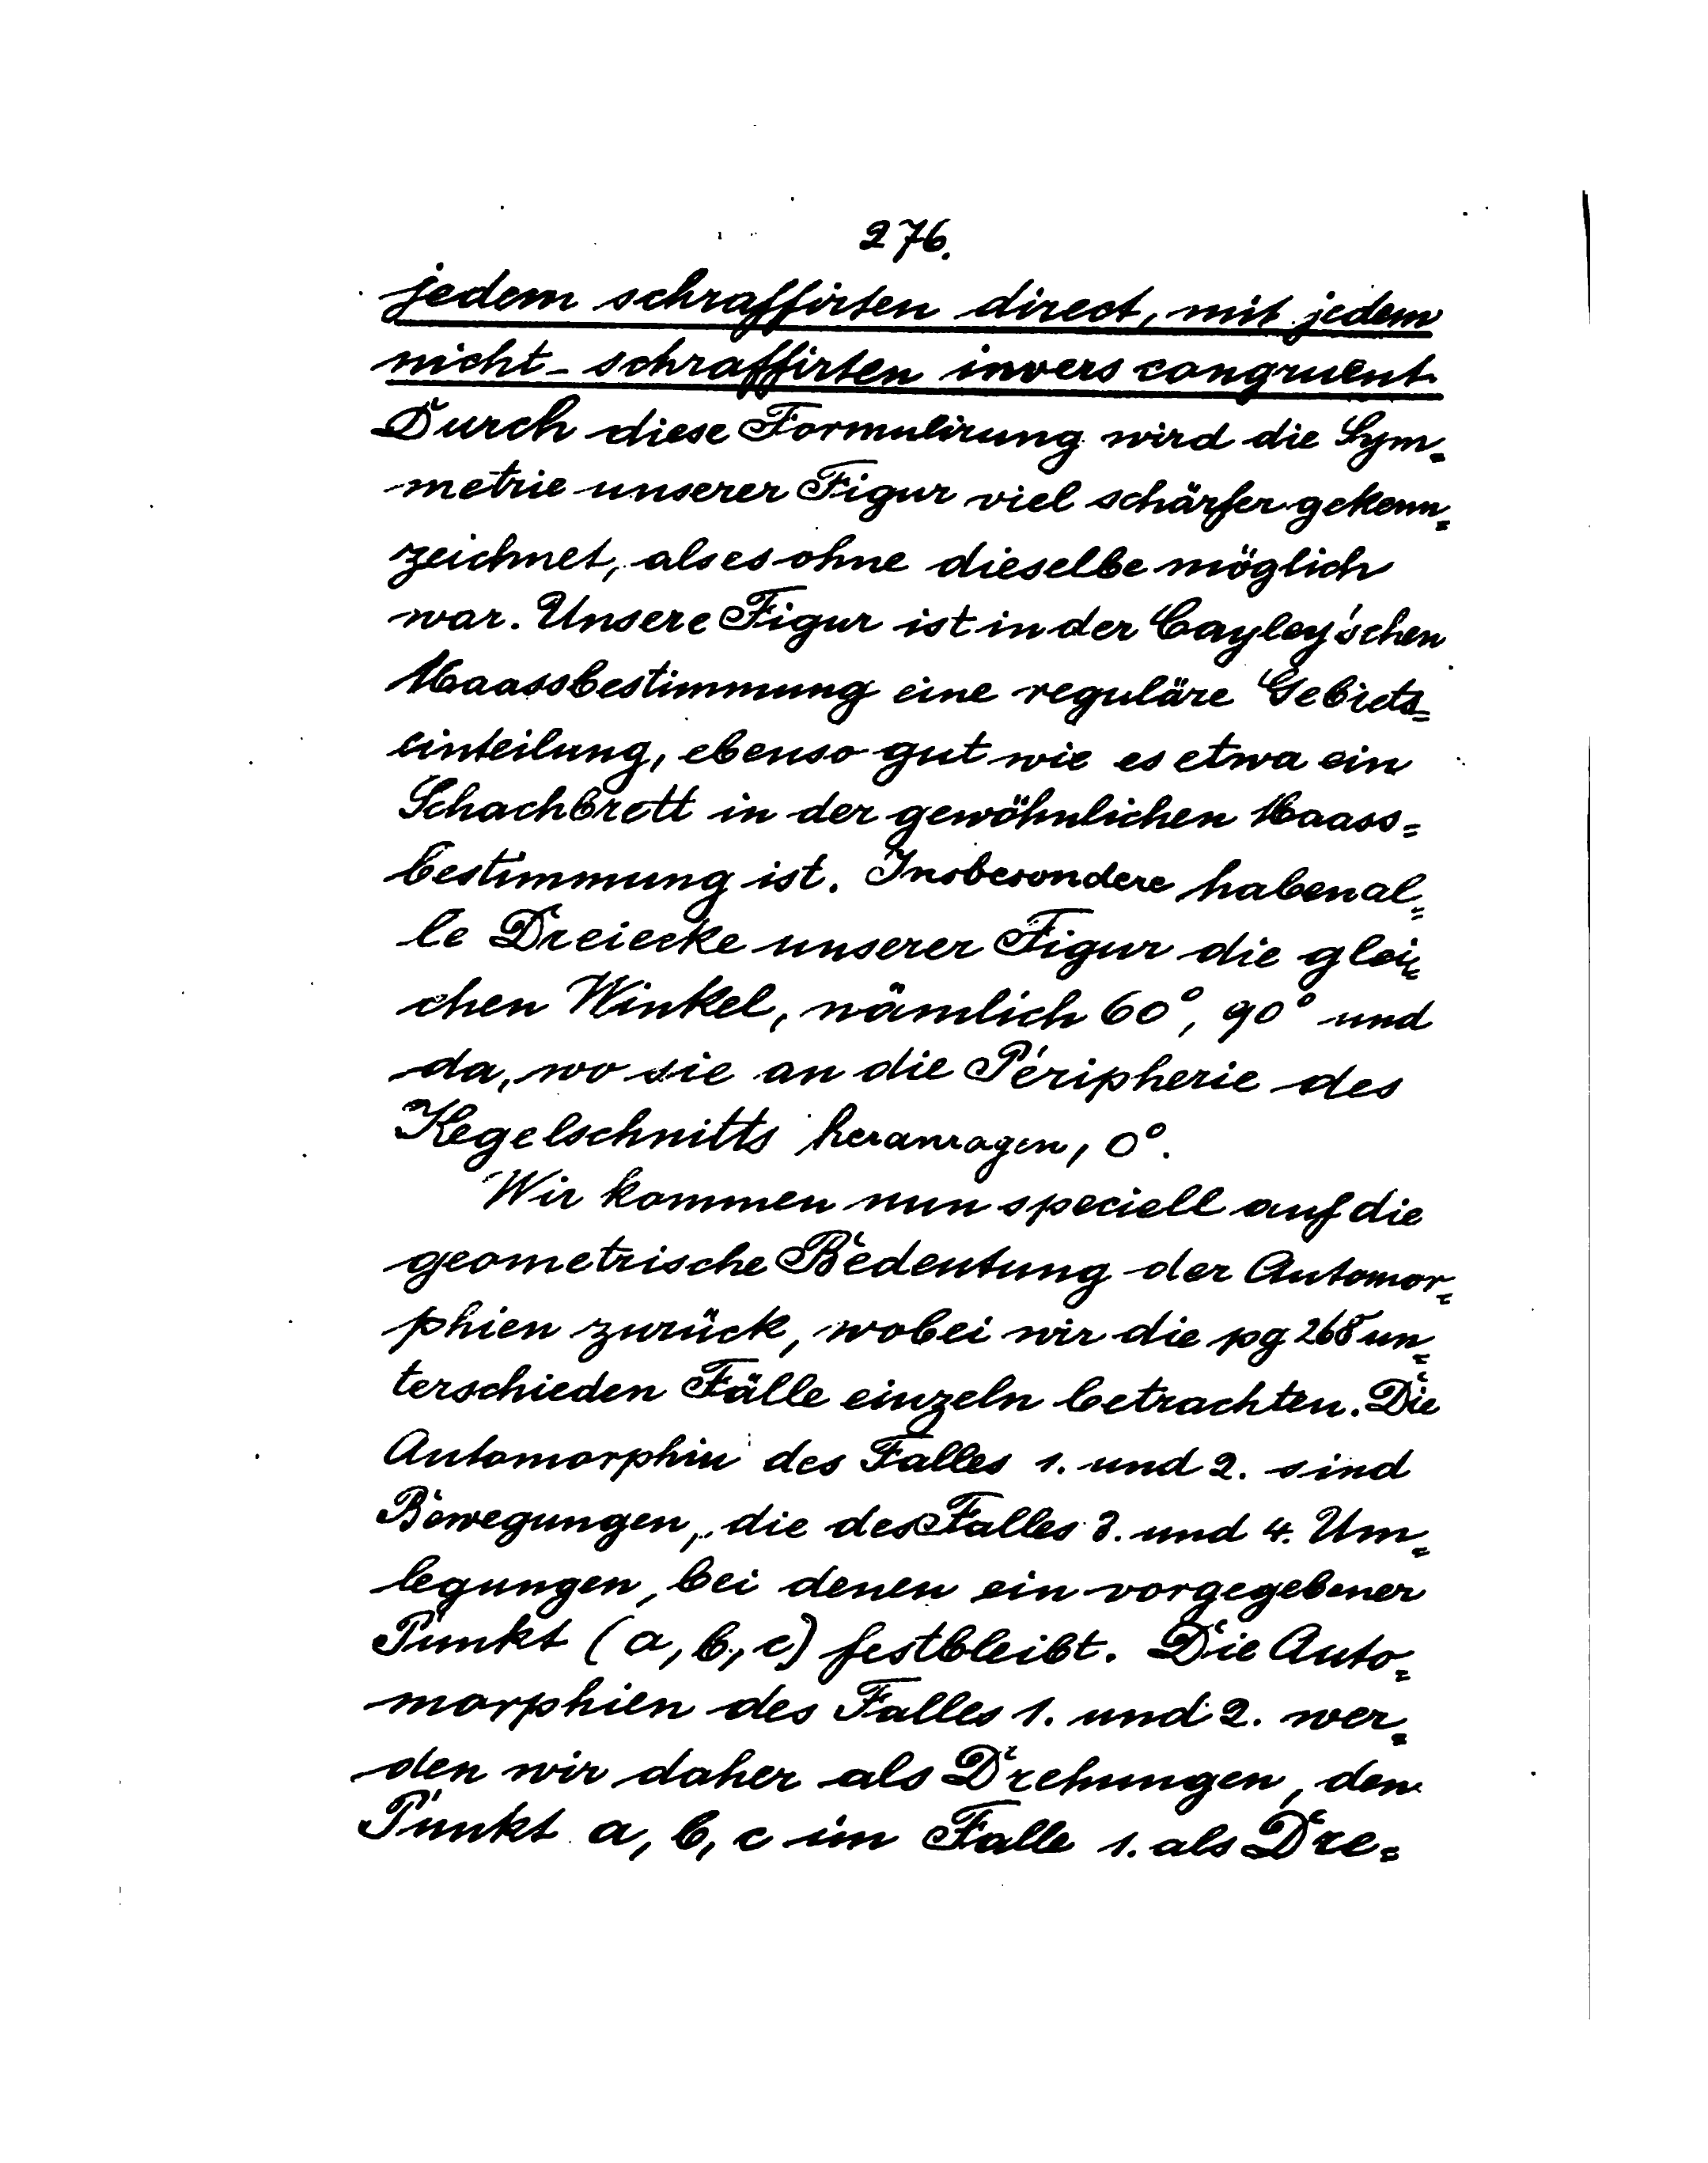 276.
jedem schraffirten direct, mit jedem
nicht-schraffirten invers congruent.
Durch diese Formulirung wird die Sym=
metrie unserer Figur viel schärfer gekenn=
zeichnet, als es ohne dieselbe möglich
war. Unsere Figur ist in der Cayley'schen
Maassbestimmung eine reguläre Gebiets=
einteilung, ebenso gut wie es etwa ein
Schachbrett in der gewöhnlichen Maass=
bestimmung ist. Insbesondere haben al=
le Dreiecke unserer Figur die glei=
chen Winkel, nämlich 60°, 90° und
da, wo sie an die Peripherie des
Kegelschnitts heranragen, 0°.
Wir kommen nun speciell auf die
geometrische Bedeutung der Automor=
phien zurück, wobei wir die pg 268 un=
terschieden Fälle einzeln betrachten. Die
Automorphin des Falles 1. und 2. sind
Bewegungen, die des Falles 3. und 4. Um=
legungen, bei denen ein vorgegebener
Punkt (a, b, c) festbleibt. Die Auto=
morphien des Falles 1. und 2. wer=
den wir daher als Drehungen, den
Punkt a, b, c im Falle 1. als Dre=